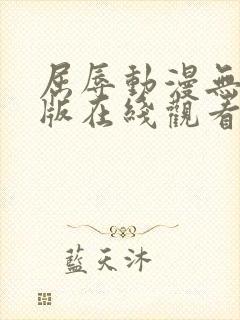 屈辱動漫無
版在綫觀看
藍天沐